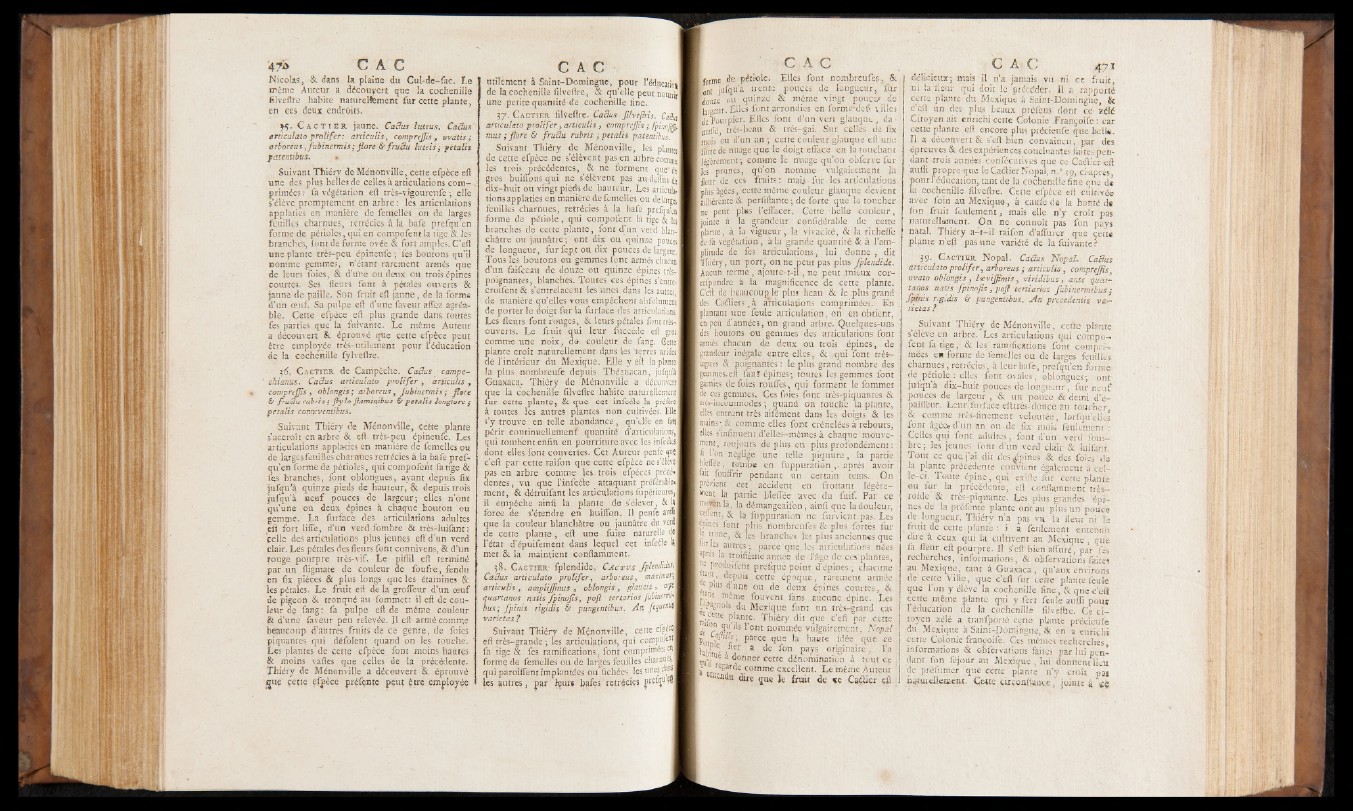 470 C A C
Nicolas, & dans la plaine du Cul-de-sac. Le
même Auteur a découvert que la cochenille
silvestre habite naturellement sur cette plante,
en ces deux endroits.
35. CACTIER jaune. Cactus luteus. Cactus
articulato prolifer: articulis, compressis, ovatis;
arboreus, subinermis; flore & fructu luteis; petalis
patentibus.
Suivant Thiéry de Ménonville, cette espèce est
une des plus belles de celles à articulations com-
primées: sa végétation est très-vigoureuse; elle
s'élève promptement en arbre: les articulations
applaties en manière de semelles ou de larges
feuilles charnues, retrécies à la base presqu'en
forme de pétioles, qui en composent la tige & les
branches, sont de forme ovée & fort amples. C'est
une plante très-peu épineuse; les boutons qu'il
nomme gemmes, n'étant rarement armés que
de leurs soies, & d'une ou deux ou trois épines
courtes. Ses fleurs sont à pétales ouverts &
jaune de paille. Son fruit est jaune, de la forme
d'un œuf. Sa pulpe est d'une saveur assez agréa-
ble. Cette espèce est plus grande dans toutes
ses parties que la suivante. Le même Auteur
a découvert & éprouvé que cette espèce peut
être employée très-utilement pour l'éducation
de la cochenille sylvestre.
36. CACTIER de Campêche. Cactus campe-
chianus. Cactus articulato prolifer, articulis,
compressis, oblongis; arboreus, subinermis; flore
& fructu rubris; stylo staminibus & petalis longiore;
petalis conniventibus.
Suivant Thiéry de Ménonville, cette plante
s'accroît en arbre & est très-peu épineuse. Les
articulations applaties en manière de semelles ou
de larges feuilles charnues retrécies à la base pres-
qu'en forme de pétioles, qui composent sa tige &
ses branches, sont oblongues, ayant depuis six
jusqu'à quinze pieds de hauteur, & depuis trois
jusqu'à neuf pouces de largeur; elles n'ont
qu'une ou deux épines à chaque bouton ou
gemme. La surface des articulations adultes
est fort lisse, d'un verd sombre & très-luisant:
celle des articulations plus jeunes est d'un verd
clair. Les pétales des fleurs sont connivens, & d'un
rouge pourpre très-vif. Le pistil est terminé
par un stigmate de couleur de soufre, fendu
en six pièces & plus longs que les étamines &
les pétales. Le fruit est de la grosseur d'un œuf
de pigeon & tronqué au sommet: il est de cou-
leur de sang: sa pulpe est de même couleur
& d'une saveur peu relevée. Il est armé comme
beaucoup d'autres fruits de ce genre, de soies
piquantes qui désolent quand on les touche.
Les plantes de cette espèce sont moins hautes
& moins vastes que celles de la précédente.
Thiéry de Ménonville a découvert & éprouvé
que cette espèce présente peut être employée
C A C
utilement à Saint-Domingue, pour l'éducation
de la cochenille silvestre, & qu'elle peut nourrir
une petite quantité de cochenille fine.
37. CACTIER silvestre. Cactus silvestris. Cactus
articulato prolifer, articulis, compressis;
mus; flore & fructu rubris; petalis patentibus.
Suivant Thiéry de Ménonville, les plantes
de cette espèce ne s'élèvent pas en arbre comme
les trois précédentes, & ne forment que de
gros buissons qui ne s'élèvent pas au-dessus de
dix-huit ou vingt pieds de hauteur. Les articula-
tions applaties en manière de semelles ou de larges
feuilles charnues, retrécies à la base presqu'en
forme de pétiole, qui composent la tige & les
branches de cette plante, sont d'un verd blan-
châtre ou jaunâtre; ont dix ou quinze pouces
de longueur, sur sept ou dix pouces de largeur.
Tous les boutons ou gemmes sont armés chacun
d'un faisceau de douze ou quinze épines très-
puignantes, blanches. Toutes ces épines s'entre-
croisent & s'entrelacent les unes dans les autres,
de manière qu'elles vous empêchent absolument
de porter le doigt sur la surface des articulations.
Les fleurs sont rouges, & leurs pétales sont très-
ouverts. Le fruit qui leur succède est gros
comme une noix, de couleur de sang. Cette
plante croît naturellement dans les terres arides
de l'intérieur du Mexique. Elle y est la plante
la plus nombreuse depuis Théhuacan, jusqu'à
Guaxaca. Thiéry de Ménonville a découvert
que la cochenille silvestre habite naturellement
sur cette plante, & que cet insecte la préfère
à toutes les autres plantes non cultivées. Elle
s'y trouve en telle abondance, qu'elle en fait
périr continuellement quantité d'articulations,
qui tombent enfin en pourriture avec les insectes
dont elles sont couvertes. Cet Auteur pense que
c'est par cette raison que cette espèce ne s'élève
pas en arbre comme les trois espèces précé-
dentes, vu que l'insecte attaquant préférable-
ment, & détruisant les articulations supérieures,
il empêche ainsi la plante de s'élever, & la
force de s'étendre en buisson. Il pense aussi
que la couleur blanchâtre ou jaunâtre du verd
de cette plante, est une suite naturelle de
l'état d'épuisement dans lequel cet insecte la
met & la maintient constamment.
38. CACTIER splendide. CACTUS splendidus.
Cactus articulato prolifer, arboreus, maximus;
articulis, amplissimis, oblongis, glaucis,
quartanos natis spinosis, post tertarios subinermi-
bus; spinis rigidis & pungentibus. An sequentis
varietas?
Suivant Thiéry de Ménonville, cette espèce
est très-grande; les articulations, qui composent
sa tige & ses ramifications, sont comprimées en
forme de semelles ou de larges feuilles charnues,
qui paroissent implantées ou fichées les unes dans
les autres, par leurs bases retrécies presqu'en
C A C
forme de pétiole. Elles sont nombreuses, &
ont jusqu'à trente pouces de longueur, sur
douze ou quinze & même vingt pouces de
largeur. Elles sont arrondies en forme des tuilles
de Pompier. Elles sont d'un vert glauque,
très-beau & très-gai. Sur celles de six
mois ou d'un an; cette couleur glauque est une
sorte de nuage que le doigt efface en la touchant
légèrement; comme le nuage qu'on observe sur
les prunes, qu'on nomme vulgairement la
fleur de ces fruits: mais sur les articulations
plus âgées, cette même couleur glauque devient
adhérente & persistante; de sorte que le toucher
ne peut plus l'effacer. Cette belle couleur,
jointe à la grandeur considérable de cette
plante, à la vigueur, la vivacité, & la richesse
de sa végétation, à la grande quantité & à l'am-
plitude de ses articulations, lui donne, dit
Thiéry, un port, on ne peut pas plus splendide.
Aucun terme, ajoute-t-il, ne peut mieux cor-
répondre à la magnificence de cette plante.
C'est de beaucoup le plus beau & le plus grand
des Cactiers à articulations comprimées. En
plantant une seule articulation, on en obtient,
en peu d'années, un grand arbre. Quelques-uns
des boutons ou gemmes des articulations sont
armés chacun de deux ou trois épines, de
grandeur inégale entre elles, & qui sont très-
& poignantes: le plus grand nombre des
gemmes est sans épines; toutes les gemmes sont
garnies de soies rousses, qui forment le sommet
de ces gemmes. Ces soies sont très-piquantes &
très-incommodes; quand on touche la plante,
elles entrent très aisément dans les doigts & les
mains: & comme elles sont crénelées à rebours,
elles s'insinuent d'elles-mêmes à chaque mouve-
ment, toujours de plus en plus profondément:
si l'on néglige une telle piquure, la partie
blessée, tombe en suppuration, après avoir
fait souffrir pendant un certain tems. On
prévient cet accident en frottant légère-
ment la partie blessée avec du suif. Par ce
moyen là, la démangeaison, ainsi que la douleur,
cessent, & la suppuration ne survient pas. Les
épines sont plus nombreuses & plus fortes sur
le tronc, & les branches les plus anciennes que
sur les autres; parce que les articulations nées
après la troisième année de l'âge de ces plantes,
ne produisent presque point d'épines, chacune
étant, depuis cette époque, rarement armée
de plus d'une ou de deux épines courtes, &
étant même souvent sans aucune épine. Les
Espagnols du Mexique font un très-grand cas
de cette plante. Thiéry dit que c'est par cette
raison qu'ils l'ont nommée vulgairement, Nopal
de Castille; parce que la haute idée que ce
Peuple fier a de son pays originaire, l'a
à donner cette dénomination à tout ce
qu'il regarde comme excellent. Le même Auteur
a entendu dire que le fruit de ce Cactier est
C A C 471
délicieux; mais il n'a jamais vu ni ce fruit,
ni la fleur qui doit le précéder. Il a rapporté
cette plante du Mexique à Saint-Domingue, &
c'est un des plus beaux présens dont ce zélé
Citoyen ait enrichi cette Colonie Françoise: car
cette plante est encore plus précieuse que belle.
Il a découvert & s'est bien convaincu, par des
épreuves & des expériences concluantes faites pen-
dant trois années consécutives que ce Cactier est
aussi propre que le Cactier Nopal, n.º 39, ci-après,
pour l'éducation, tant de la cochenille fine que de
la cochenille silvestre. Cette espèce est cultivée
avec soin au Mexique, à cause de la bonté de
son fruit seulement, mais elle n'y croît pas
naturellement. On ne connoît pas son pays
natal. Thiéry a-t-il raison d'assurer que cette
plante n'est pas une variété de la suivante?
39. CACTIER Nopal. Cactus Nopal. Cactus
articulato prolifer, arboreus; articulis, compressis,
ovato oblongis, lævissimis, viridibus; ante quar-
tanos natis spinosis; post tertarios subinermibus;
spinis rigidis & pungentibus. An præcedentis va-
rietas?
Suivant Thiéry de Ménonville, cette plante
s'élève en arbre. Les articulations qui compo-
sent sa tige, & les ramifications sont compri-
mées en forme de semelles ou de larges feuilles
charnues, retrécies, à leur base, presqu'en forme
de pétiole: elles sont ovales, oblongues; ont
jusqu'à dix-huit pouces de longueur, sur neuf
pouces de largeur, & un pouce & demi d'é-
paisseur. Leur surface est très-douce au toucher,
& comme très-finement veloutée, lorsqu'elles
sont âgées d'un an ou de six mois seulement:
Celles qui sont adultes, sont d'un verd som-
bre; les jeunes sont d'un verd clair & luisant.
Tout ce que j'ai dit des épines & des soies de
la plante précédente convient également à cel-
le-ci. Toute épine, qui existe sur cette plante
ou sur la précédente, est constamment très-
roide & très-piquante. Les plus grandes épi-
nes de la présente plante ont au plus un pouce
de longueur. Thiéry n'a pas vu la fleur ni le
fruit de cette plante: il a seulement entendu
dire à ceux qui la cultivent au Mexique, que
sa fleur est pourpre. Il s'est bien assuré, par ses
recherches, informations, & observations faites
au Mexique, tant à Guaxaca, qu'aux environs
de cette Ville, que c'est sur cette plante seule
que l'on y élève la cochenille fine, & que c'est
cette même plante qui y sert seule aussi pour
l'éducation de la cochenille silvestre. Ce ci-
toyen zélé a transporté cette plante précieuse
du Mexique à Saint-Domingue, & en a enrichi
cette Colonie françoise. Ces mêmes recherches,
informations & observations faites par lui pen-
dant son séjour au Mexique, lui donnent lieu
de présumer que cette plante n'y croît pas
naturellement. Cette circonstance, jointe à ce